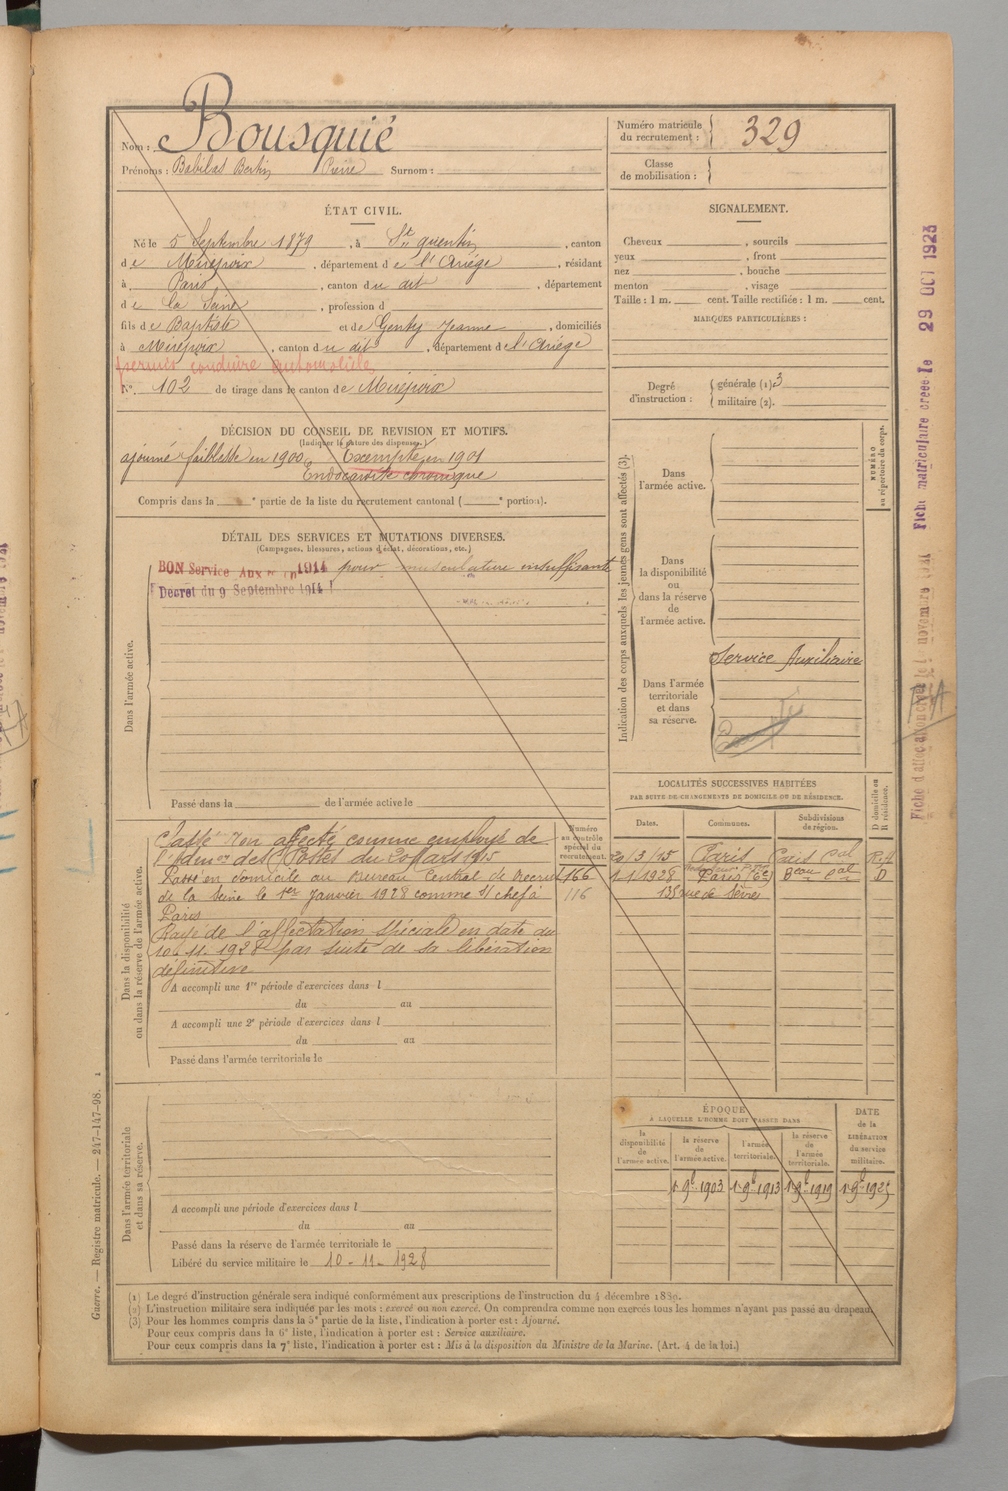 Nom : Bousquié
Prénoms : Babilas Bertin Pierre Surnom :
Numéro matricule du recrutement : 329
Classe de mobilisation :
ÉTAT CIVIL.
Né le 5 Septembre 1879, à St quentin, canton
de Mirepoix, département de l'Ariège, résidant
à Paris, canton du dit, département
de la Seine, profession d
fils de Baptiste et de Genty Jeanne, domiciliés
à Mirepoix, canton du dit, département de l'Ariège
permis conduire automobile
N° 102 de tirage dans le canton de Mirepoix
SIGNALEMENT.
Cheveux , sourcils
yeux , front
nez , bouche
menton , visage
Taille : 1 m. cent. Taille rectifiée : 1 m. cent.
MARQUES PARTICULIÈRES :
Degré d'instruction : générale (1) 3
militaire (2).
DÉCISION DU CONSEIL DE REVISION ET MOTIFS.
(Indiquer la nature des dispenses.)
ajourné faiblesse en 1900, Exempté en 1901
Endocardite chronique
Compris dans la e partie de la liste du recrutement cantonal ( e portion).
DÉTAIL DES SERVICES ET MUTATIONS DIVERSES.
(Campagnes, blessures, actions d'éclat, décorations, etc.)
BON Service Aux 1914 pour musculature insuffisante
Décret du 9 Septembre 1914
Dans l'armée active.
Passé dans la de l'armée active le
Indication des corps auxquels les jeunes gens sont affectés (3).
NUMÉRO au répertoire du corps.
Dans l'armée active.
Dans la disponibilité ou dans la réserve de l'armée active.
Dans l'armée territoriale et dans sa réserve.
Service Auxiliaire
Dans la disponibilité ou dans la réserve de l'armée active.
Classé Non affecté comme employé de
l'Admon des Postes du 20 Mars 1915
Passé en domicile au Bureau Central de Recrut
de la Seine le 1er Janvier 1928 comme s/ chef à
Paris
Rayé de l'affectation spéciale en date du
10.11.1928 par suite de sa libération
définitive
Numéro au contrôle spécial du recrutement.
166
116
A accompli une 1re période d'exercices dans l
du au
A accompli une 2e période d'exercices dans l
du au
Passé dans l'armée territoriale le
LOCALITÉS SUCCESSIVES HABITÉES
PAR SUITE DE CHANGEMENTS DE DOMICILE OU DE RÉSIDENCE.
Dates. Communes. Subdivisions de région. D domicile ou R résidence.
20/3/15 Paris
1-1/1928 Paris (6e) Beau Cal D
135 rue de Sèvres
Dans l'armée territoriale et dans sa réserve.
A accompli une période d'exercices dans l
du au
Passé dans la réserve de l'armée territoriale le
Libéré du service militaire le 10-11-1928
ÉPOQUE
À LAQUELLE L'HOMME DOIT PASSER DANS
la disponibilité de l'armée active. la réserve de l'armée active. l'armée territoriale. la réserve de l'armée territoriale. DATE de la LIBÉRATION du service militaire.
1.9b.1903 1.9b.1913 1.9b.1919 1.9b.1925
(1) Le degré d'instruction générale sera indiqué conformément aux prescriptions de l'instruction du 4 décembre 1889.
(2) L'instruction militaire sera indiquée par les mots : exercé ou non exercé. On comprendra comme non exercés tous les hommes n'ayant pas passé au drapeau.
(3) Pour les hommes compris dans la 5e partie de la liste, l'indication à porter est : Ajourné.
Pour ceux compris dans la 6e liste, l'indication à porter est : Service auxiliaire.
Pour ceux compris dans la 7e liste, l'indication à porter est : Mis à la disposition du Ministre de la Marine. (Art. 4 de la loi.)
Guerre. — Registre matricule. — 247-147-98. 1
Fiche matriculaire créée le 29 OCT 1923